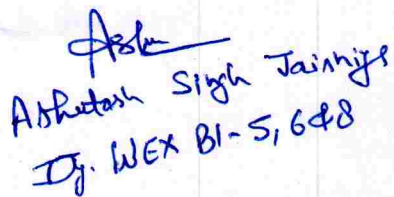 Ashu
Ashutosh Singh Jainniya
Dy. WEX Bl-5, 6&8